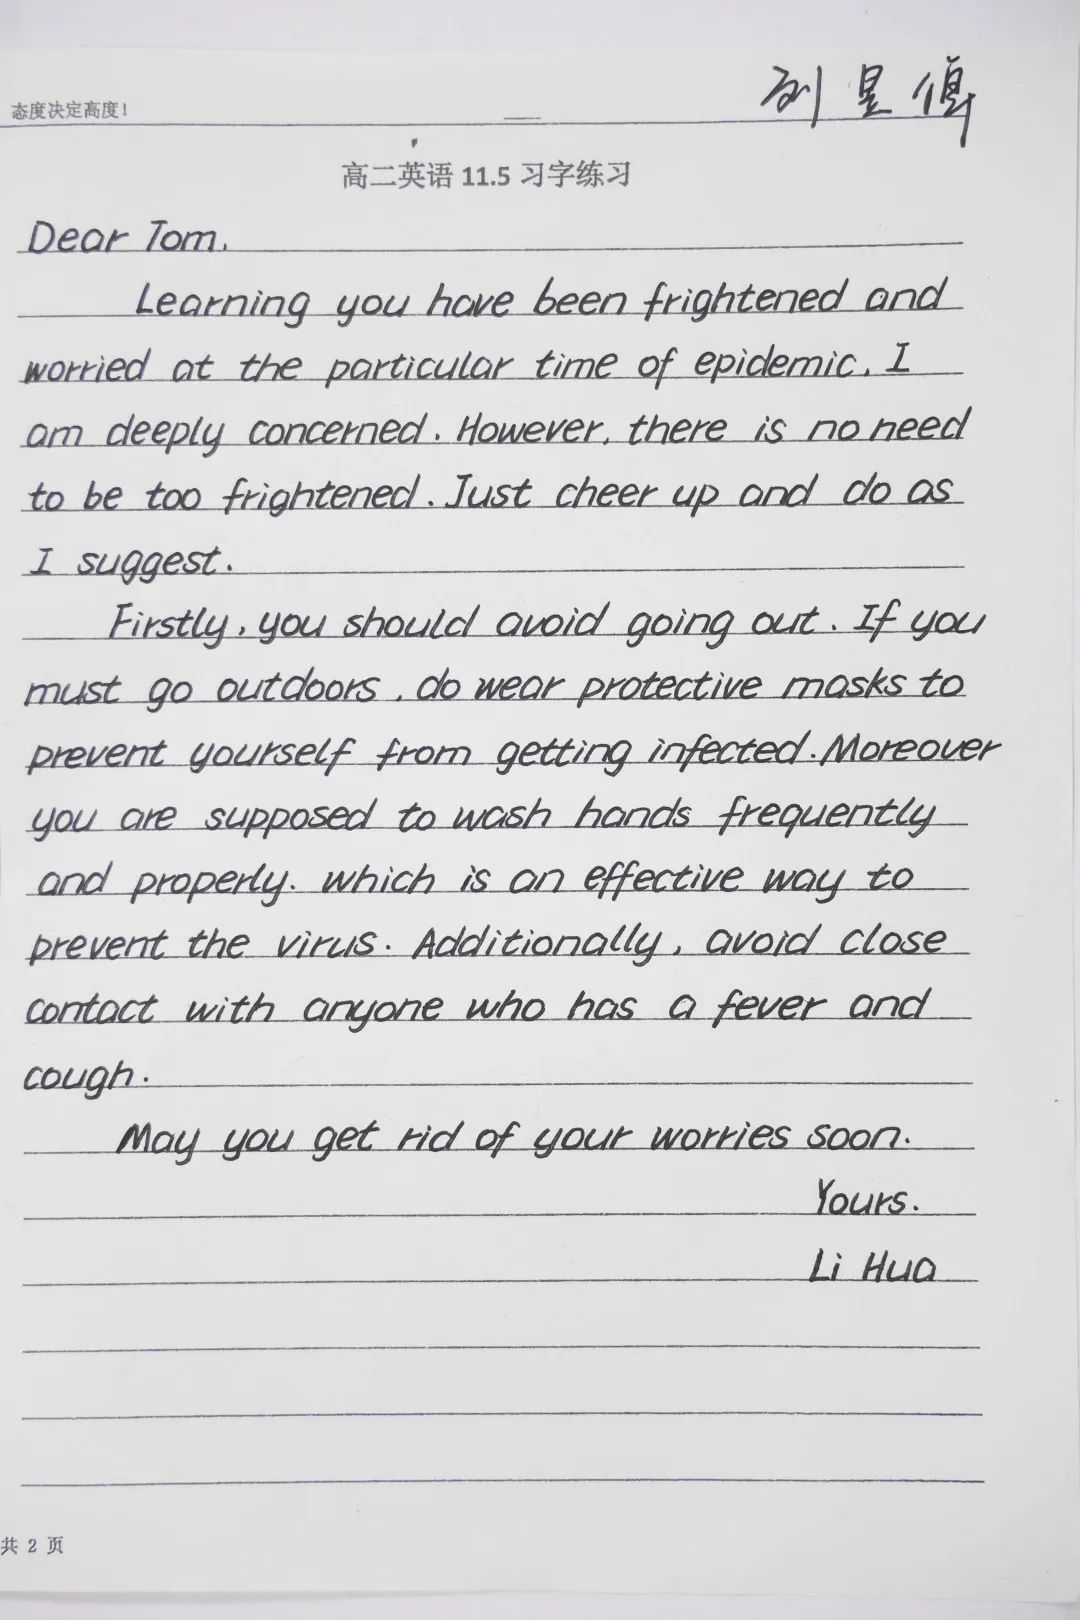 态度决定高度!
刘昱
高二英语 11.5 习字练习
Dear Tom,
Learning you have been frightened and
worried at the particular time of epidemic, I
am deeply concerned. However, there is no need
to be too frightened. Just cheer up and do as
I suggest.
Firstly, you should avoid going out. If you
must go outdoors, do wear protective masks to
prevent yourself from getting infected. Moreover
you are supposed to wash hands frequently
and properly. which is an effective way to
prevent the virus. Additionally, avoid close
contact with anyone who has a fever and
cough.
May you get rid of your worries soon.
Yours.
Li Hua
共 2 页